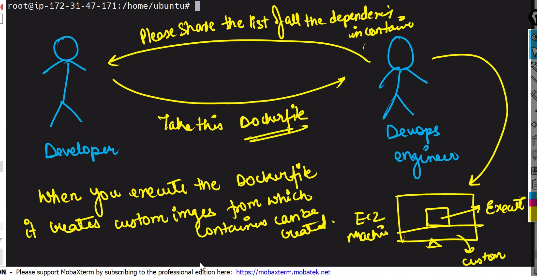 root@ip-172-31-47-171:/home/ubuntu#
Please share the list of all the dependencies
in container
Take this Dockerfile
Developer
Devops
engineer
When you execute the Dockerfile
it creates custom imges from which
Containers can be
created.
EC2
machin
Execut
custom
ON - Please support MobaXterm by subscribing to the professional edition here: https://mobaxterm.mobatek.net